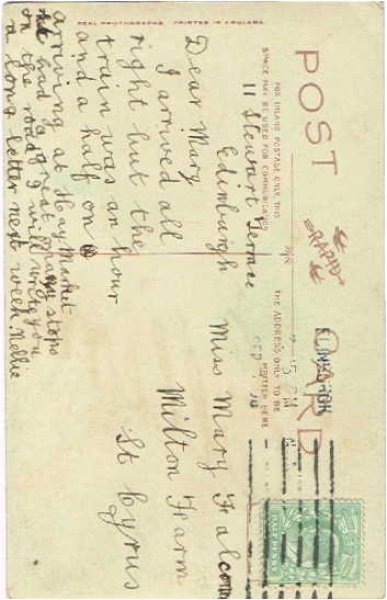 REAL PHOTOGRAPHS. PRINTED IN ENGLAND.
POST CARD
RAPID
FOR INLAND POSTAGE ONLY, THIS
SPACE MAY BE USED FOR COMMUNICATION.
THE ADDRESS ONLY TO BE
WRITTEN HERE.
11 Stewart Terrace
Edinburgh
Dear Mary
I arrived all
right but the
train was an hour
and a half on
arriving at Haymarket
had a great many stops
on the road I will write you
a long letter next week. Nellie
Miss Mary Falconer
Milton Farm
St Cyrus
HALFPENNY